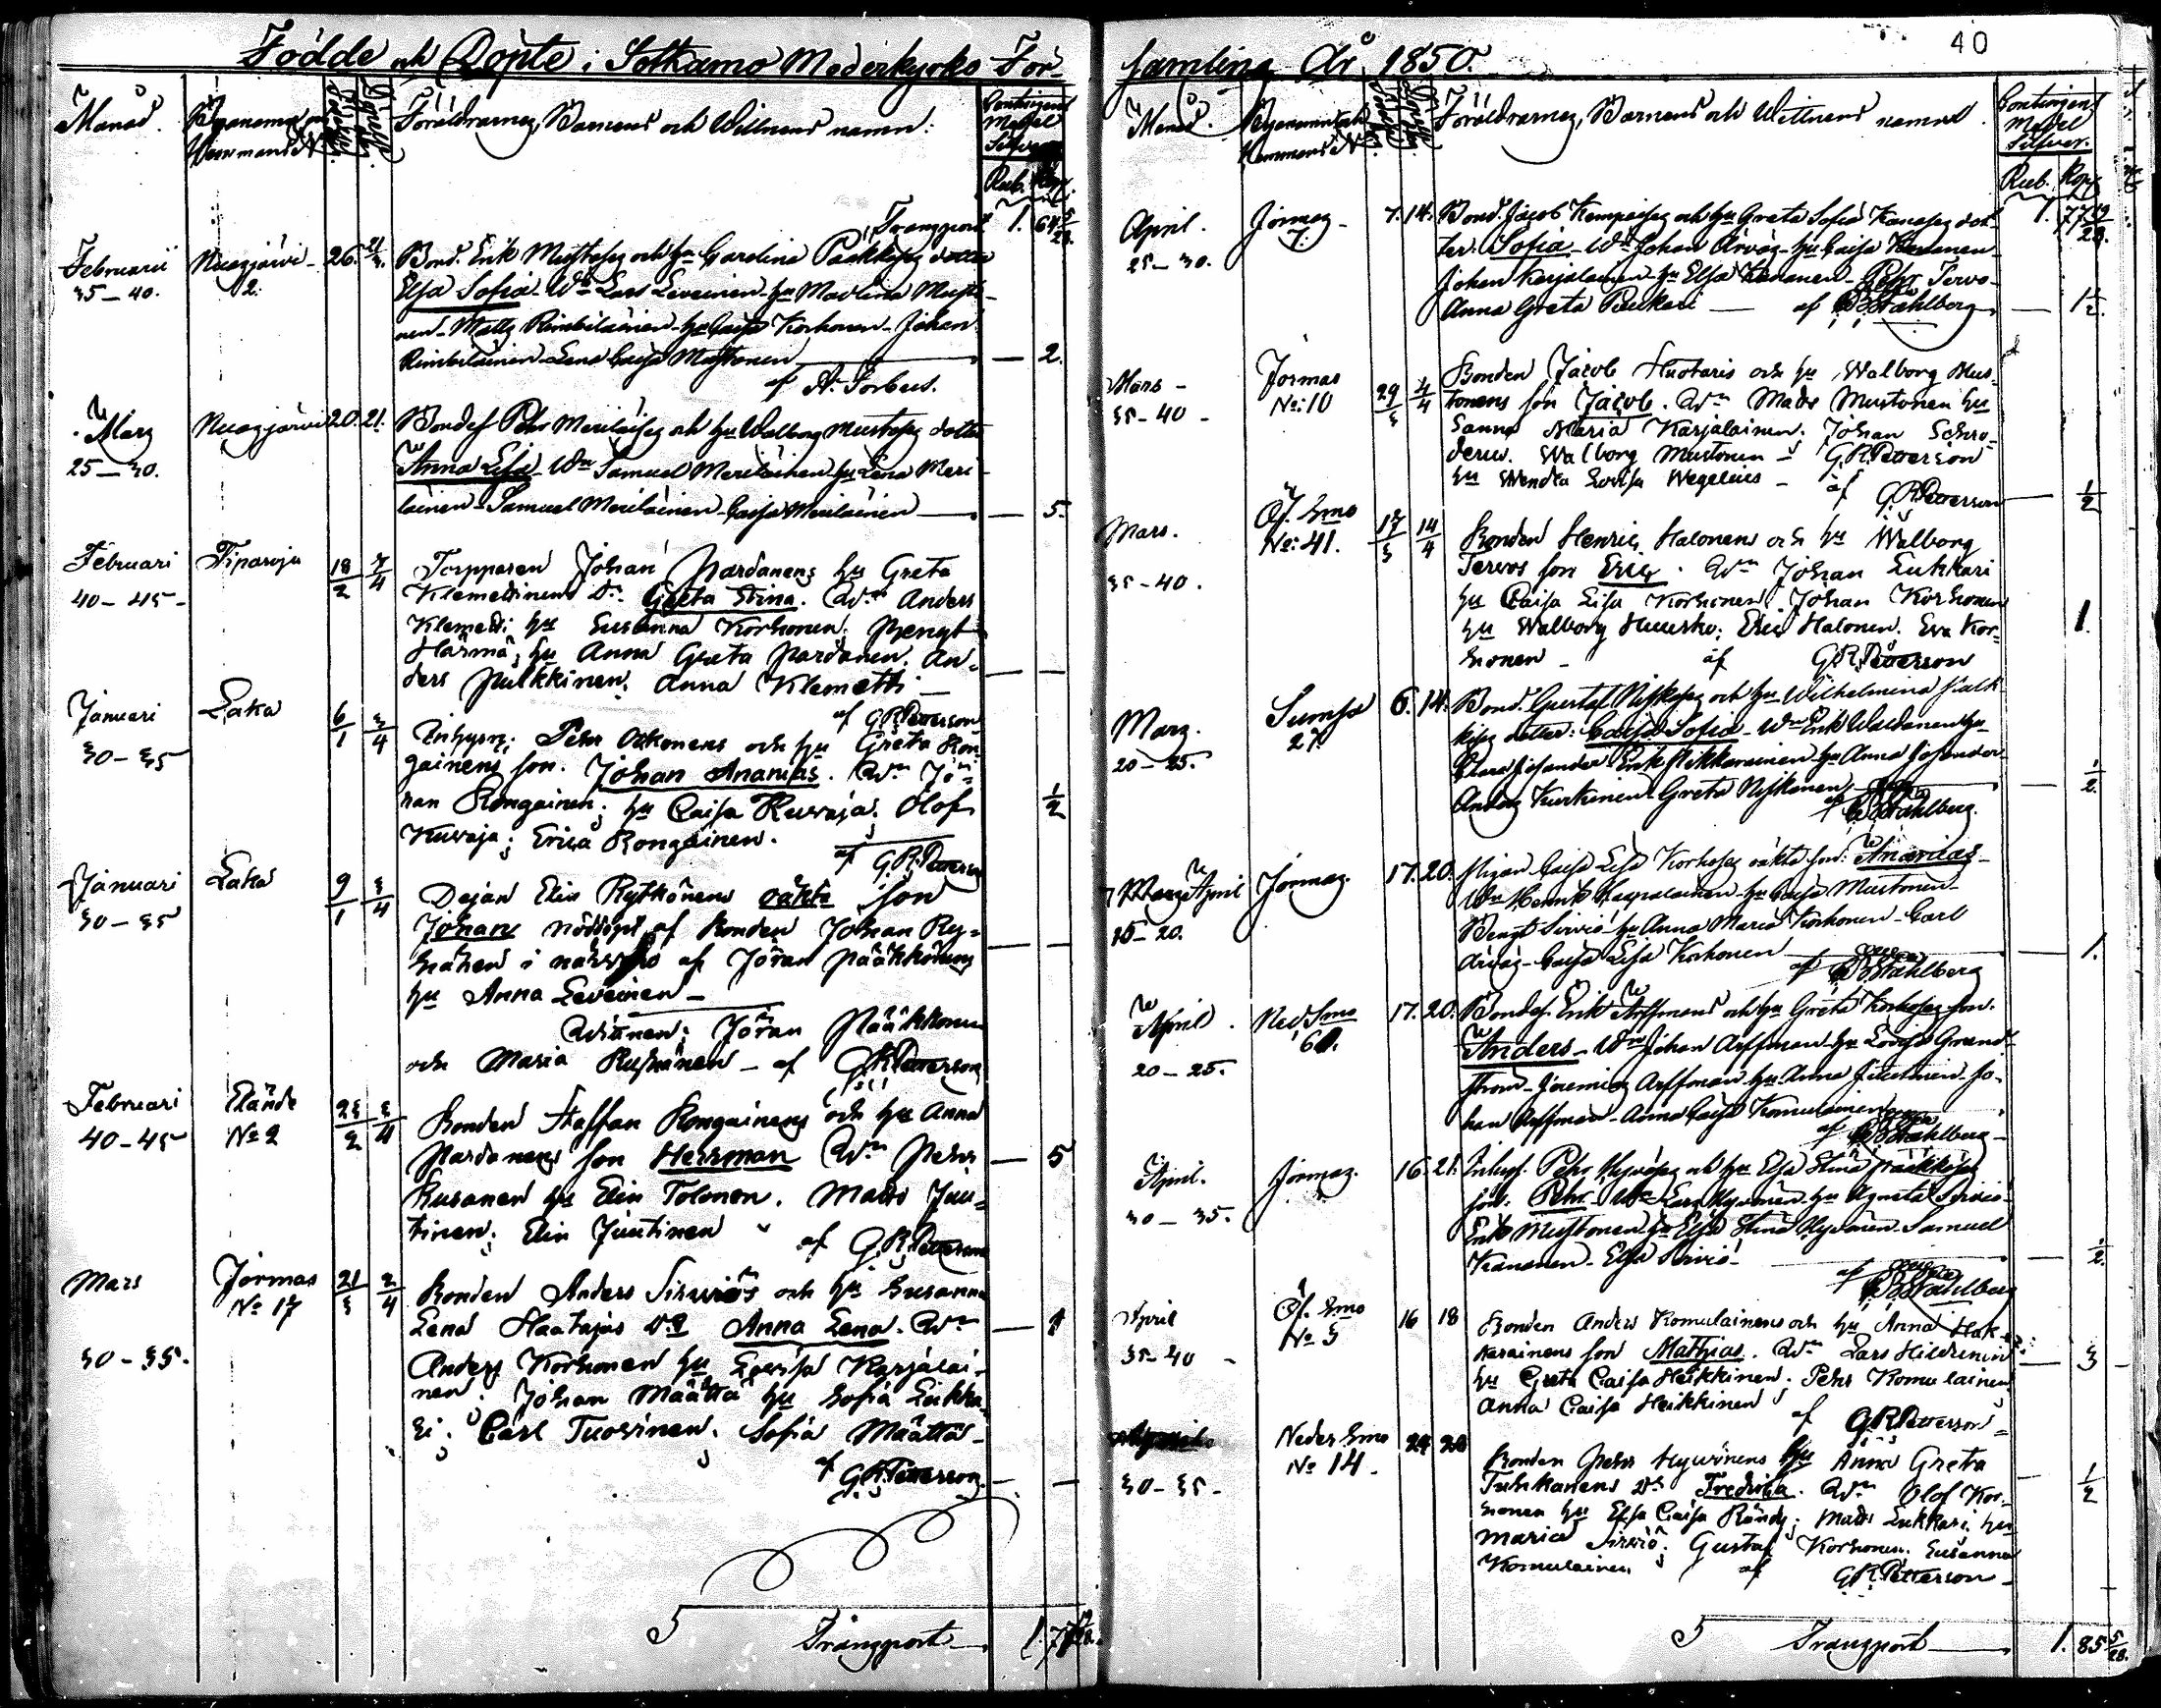 Födde och Döpte i Sotkamo Moderkyrko För-
Månad.
Byanamn och
Hemmans No
Födelse
Döpelse
Föräldrarnes, Barnens och Wittnens namn:
Contingent
Medel
Silfver
Rub. Kop.
Transport 1. 64 5/28.
Februarii
35-40.
Nuasjärvi
2.
26. 21/3.
Bond. Erik Mustoses och hu Carolina Pääkköses dotter
Elsa Sofia - Wn Lars Leveinen - hu Madlena Musto-
nen - Matts Rimbiläinen - hu Caisa Korhonen - Johan
Rimbiläinen - Lena Caisa Mustonen — 2.
af A. Forbus.
Mars
25-30.
Nuasjärvi 20. 21.
Bonden Pehr Meriläises och hu Walborg Mustoses dotter
Anna Lisa - Wn Samuel Meriläinen - hu Lena Meri-
läinen - Samuel Meriläinen - Caisa Meriläinen — 5.
Februari
40-45-
Tiparoja
18/2 7/4
Torpparen Johan Pardanens hu Greta
Klemettinens Dr. Greta Stina. Wn Anders
Klemetti hu Susanna Korhonen; Bengt
Härmä; hu Anna Greta Pardanen. An-
ders Pulkkinen. Anna Klemetti —
af G.R. Petterson
Januari
30-35
Laka
6/1 3/4
Inhysn; Pehr Oikonens och hu Greta Ron-
gainens son. Johan Ananias. Wn Jo-
han Rongainen; hu Caisa Kuvaja. Olof
Kuvaja; Erica Rongainen.
1/2
af G.R. Petterson
Januari
30-35
Laka
9/1 3/4
Dejan Elin Rytkönens oäkta son
Johan nöddöpt af Bonden Johan Ry-
hänen i närvaro af Jöran Pääkkönens
hu Anna Leveinen —
Wittnen; Jöran Pääkkönen
och Maria Ryhänen - af G.R. Petterson
Februari
40-45
No 2
23/2 3/4
Bonden Staffan Rongainens och hu Anna
Pardanens son Herrman Wn Pehr — 5
Rusanen hu Elin Tolonen. Matts Juu-
tinen; Elin Juutinen
af G.R. Petterson
Mars
30-35.
Jormas
No 17
21/3 2/4
Bonden Anders Sirviös och hu Susanna
Lena Haatajas Dr Anna Lena. Wn — 1
Anders Korhonen hu Lovisa Karjalai-
nen. Johan Määttä hu Sofia Lukka-
ri. Carl Tuovinen. Sofia Määttä -
af G.R. Petterson
Transport 1. 77 19/28.
samling År 1850.
40
Månad.
Byanamn och
Hemmans No
Föräldrarnes, Barnens och Wittnens namn
Contingent
Medel
Silfver.
Rub. Kop.
1. 77 19/28.
April.
25-30.
Jormas
7.
7. 14.
Bond. Jacob Kempaises och hu Greta Sofia Kanases dot-
ter. Sofia - Wn Johan Arväs - hu Caisa Kananen
Johan Karjalainen - hu Elsa Kananen - Pehr Tervo-
Anna Greta Pulkari — af Ståhlberg — 1 1/2.
Mars -
35-40 -
Jormas
No: 10
29/3 4/4
Bonden Jacob Huotaris och hu Walborg Mus-
tonens son Jacob. Wn Matts Mustonen hu
Sanna Maria Karjalainen. Johan Schro-
derus. Walborg Mustonen - G.R. Petterson
hu Wendla Lovisa Wegelius - af G.R. Petterson — 1/2
Mars.
35-40.
Öf. Smo
No: 41.
17/3 14/4
Bonden Henric Halonens och hu Walborg
Tervos son Eric. Wn Johan Lukkari
hu Caisa Lisa Korhonen. Johan Korhonen
hu Walborg Huusko; Eric Halonen. Eva Kor- 1.
honen - af G.R. Petterson
Mars.
20-25.
Sumsa
27.
6. 14.
Bond. Gustaf Niskases och hu Wilhelmina
dotter: Caisa Sofia - Wn Erik Waldanen hu
Clara Josander - Erik Mikkarainen - hu Anna Josander
Anders Kurkinen - Greta Niskanen — 1/2.
af Ståhlberg.
April
15-20.
Jormas.
17. 20.
Pigan Caisa Lisa Korhoses oäkta son: Ananias -
Wn Henrik Karjalainen - hu Caisa Mustonen -
Bengt Sirviö - hu Anna Maria Korhonen - Carl
Arväs - Caisa Lisa Korhonen — 1.
af Ståhlberg
April.
20-25.
Ned. Smo
17. 20.
Bonden Erik Arffmans och hu Greta Korhoses son.
Anders - Wn Johan Arffman - hu Lovisa Grund-
strom - Jeremias Arffman - hu Anna Juntunen - Jo-
han Arffman - Anna Caisa Komulainen
af Ståhlberg -
April.
30-35.
Jormas.
16. 21.
Inhys. Pehr Hyvöses och hu Elsa Stina Pääkköses
son. Pehr - Wn Lars Hyvönen - hu Agneta Sirviö -
Erik Mustonen - hu Elsa Stina Hyvönen - Samuel
Kananen - Elsa Sirviö — 1/2.
af Ståhlberg
April
35-40 -
Öf. Smo
No 3
16 18
Bonden Anders Komulainens och hu Anna Hak-
karainens son Mathias. Wn Lars Hildunen — 3 -
hu Greta Caisa Heikkinen. Pehr Komulainen
Anna Caisa Heikkinen
af G.R. Petterson
30-35-
Neder Smo
No 14.
Bonden Pehr Hyvönens hu Anna Greta
Tuhkanens Dr Fredrika. Wn Olof Kor- 1/2
honen hu Elsa Caisa Rändy; Matts Lukkari. hu
Maria Sirviö; Gustaf Korhonen. Susanna
Komulainen af G.R. Petterson -
Transport — 1. 85 5/28.